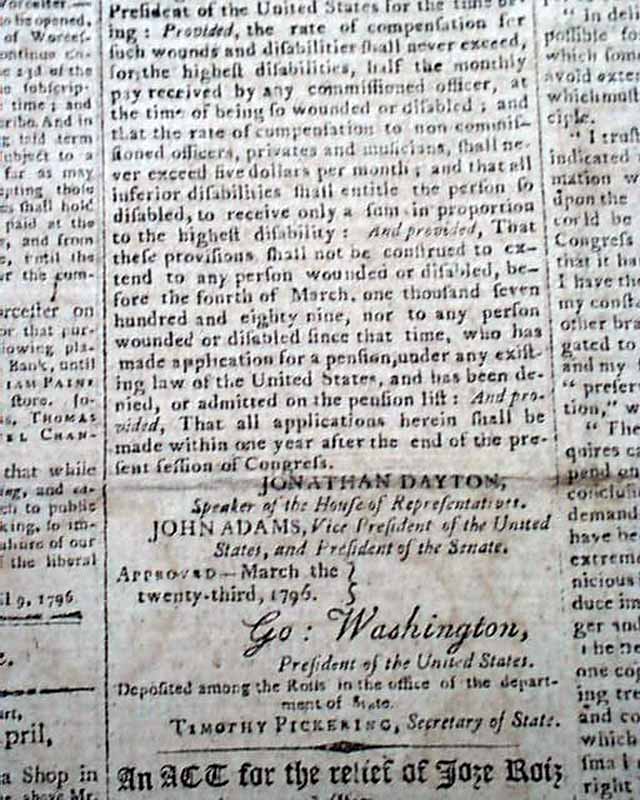 Worcester.—
to be opened,
of Worcef-
23d of the
fubfcrip-
time ; and
cribe. And in
term
ubject to a
far as may
epting thofe
es fhall hold
paid at the
, and from
until the
the com-
orcefter on
or that pur-
lowing pla-
Bank, until
IAM PAINE
ftore. fo-
s, THOMAS
EL CHAN-
that while
and
ch to public
king, fo im-
of our
the liberal
9, 1796
pril,
a Shop in
above Mr.
Prefident of the United States for the time be-
ing : Provided, the rate of compenfation for
fuch wounds and difabilities fhall never exceed,
for the higheft difabilities, half the monthly
pay received by any commiffioned officer, at
the time of being fo wounded or difabled ; and
that the rate of compenfation to non commif-
fioned officers, privates and muficians, fhall ne-
ver exceed five dollars per month ; and that all
inferior difabilities fhall entitle the perfon fo
difabled, to receive only a fum in proportion
to the higheft difability : And provided, That
thefe provifions fhall not be conftrued to ex-
tend to any perfon wounded or difabled, be-
fore the fourth of March, one thoufand feven
hundred and eighty nine, nor to any perfon
wounded or difabled fince that time, who has
made application for a penfion, under any exift-
ing law of the United States, and has been de-
nied, or admitted on the penfion lift : And pro-
vided, That all applications herein fhall be
made within one year after the end of the pre-
fent feffion of Congrefs.
JONATHAN DAYTON,
Speaker of the Houfe of Reprefentatives.
JOHN ADAMS, Vice Prefident of the United
States, and Prefident of the Senate.
APPROVED—March the }
twenty-third, 1796. }
Go: Wafhington,
Prefident of the United States.
Depofited among the Rolls in the office of the depart-
ment of State.
TIMOTHY PICKERING, Secretary of State.
An ACT for the relief of Joze Roiz
" In deli
poffible fo
which fom
avoid exte
which muft
ciple.
" I truft
indicated
mation w
upon the
could be
Congrefs
that it ha
I have th
my conft
other bra
gated to
and my
" prefer
tion," w
" The
quires ca
pend on
conclufi
demand
have be
extreme
nicious
duce im
ger and
one cop
ing tre
and co
which
fmall
right